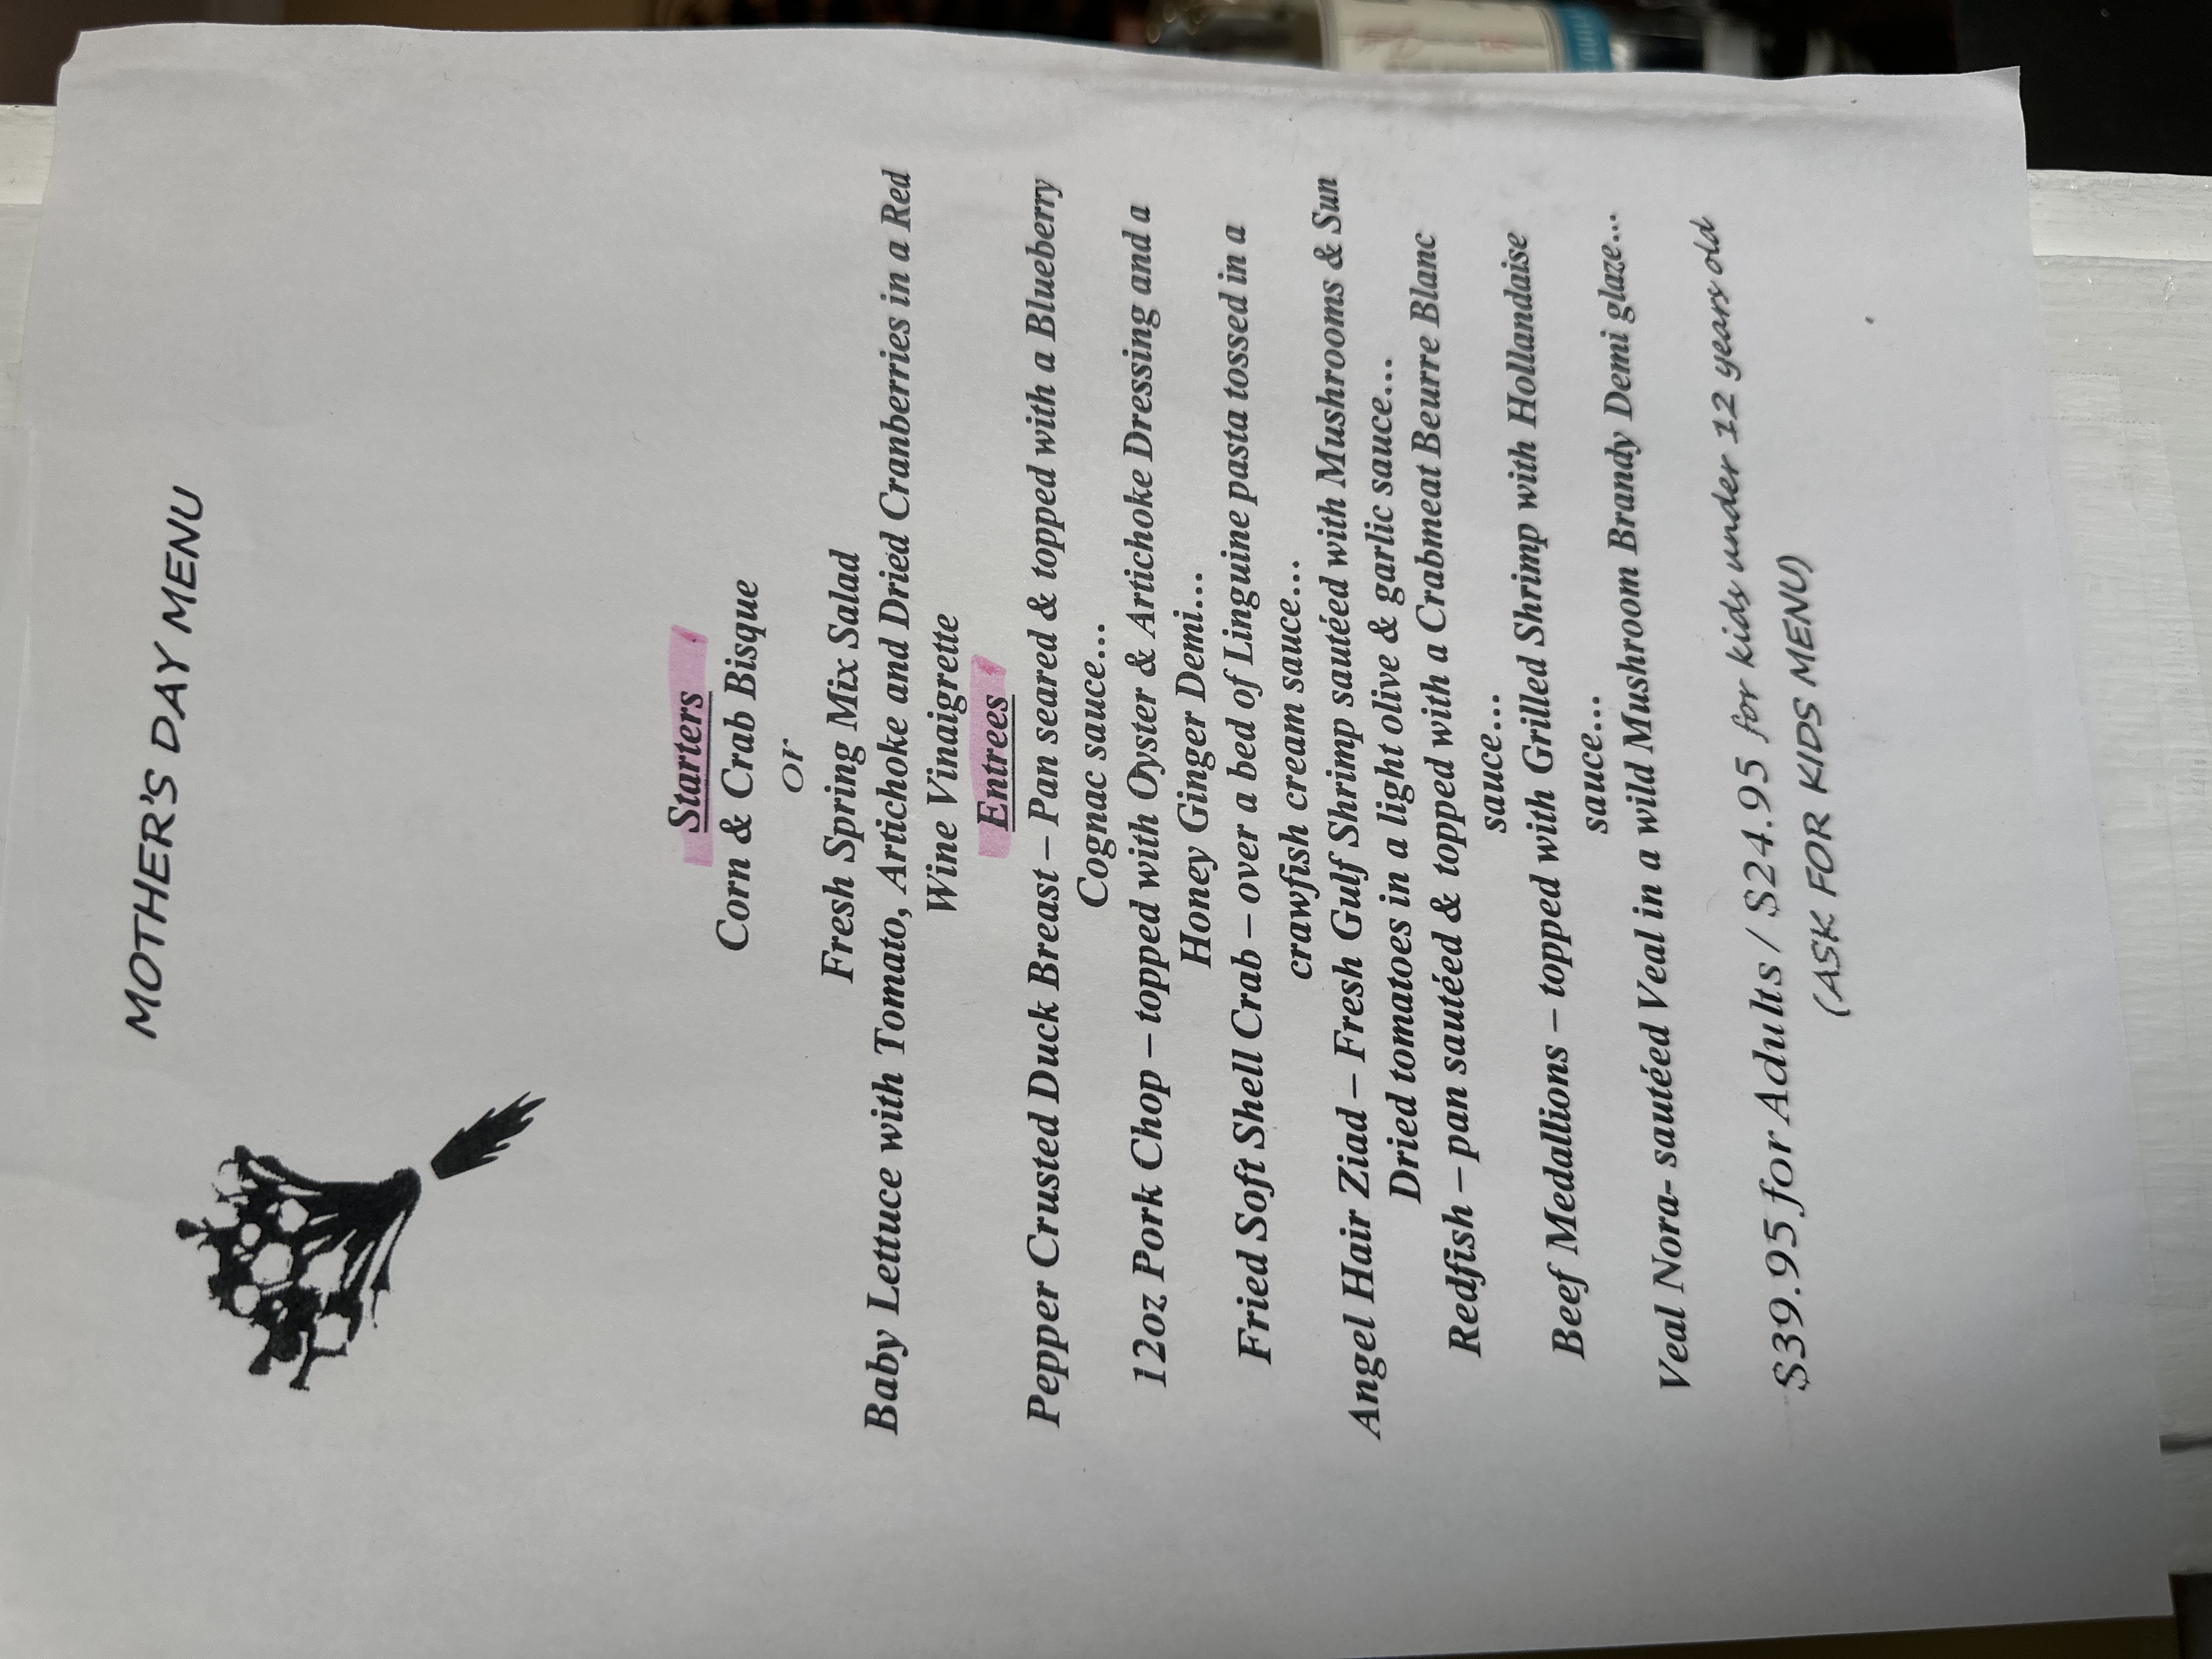 MOTHER'S DAY MENU
Starters
Corn & Crab Bisque
or
Fresh Spring Mix Salad
Baby Lettuce with Tomato, Artichoke and Dried Cranberries in a Red
Wine Vinaigrette
Entrees
Pepper Crusted Duck Breast – Pan seared & topped with a Blueberry
Cognac sauce...
12oz Pork Chop – topped with Oyster & Artichoke Dressing and a
Honey Ginger Demi...
Fried Soft Shell Crab – over a bed of Linguine pasta tossed in a
crawfish cream sauce...
Angel Hair Ziad – Fresh Gulf Shrimp sautéed with Mushrooms & Sun
Dried tomatoes in a light olive & garlic sauce...
Redfish – pan sautéed & topped with a Crabmeat Beurre Blanc
sauce...
Beef Medallions – topped with Grilled Shrimp with Hollandaise
sauce...
Veal Nora- sautéed Veal in a wild Mushroom Brandy Demi glaze...
$39.95 for Adults / $24.95 for kids under 12 years old
(ASK FOR KIDS MENU)